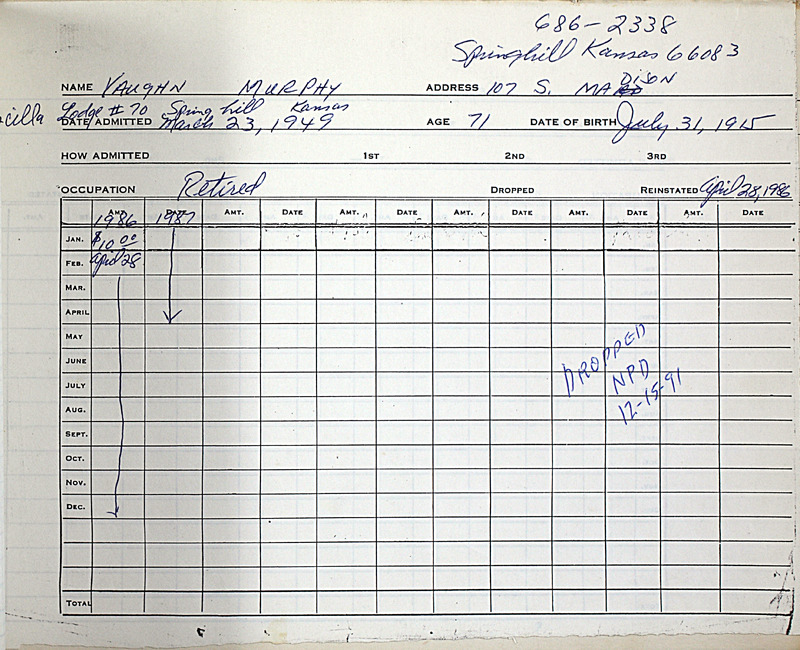 686-2338
Springhill Kansas 66083
NAME VAUGHN MURPHY ADDRESS 107 S. MADISON
cilla Lodge #70 Spring hill Kansas
DATE ADMITTED March 23, 1949 AGE 71 DATE OF BIRTH July 31, 1915
HOW ADMITTED 1ST 2ND 3RD
OCCUPATION Retired DROPPED REINSTATED April 28, 1986
AMT. DATE AMT. DATE AMT. DATE AMT. DATE AMT. DATE AMT. DATE
1986 1987
JAN. $10.00
FEB. April 28
MAR.
APRIL
MAY
JUNE
JULY
AUG.
SEPT.
OCT.
NOV.
DEC.
TOTAL
DROPPED
NPD
12-15-91